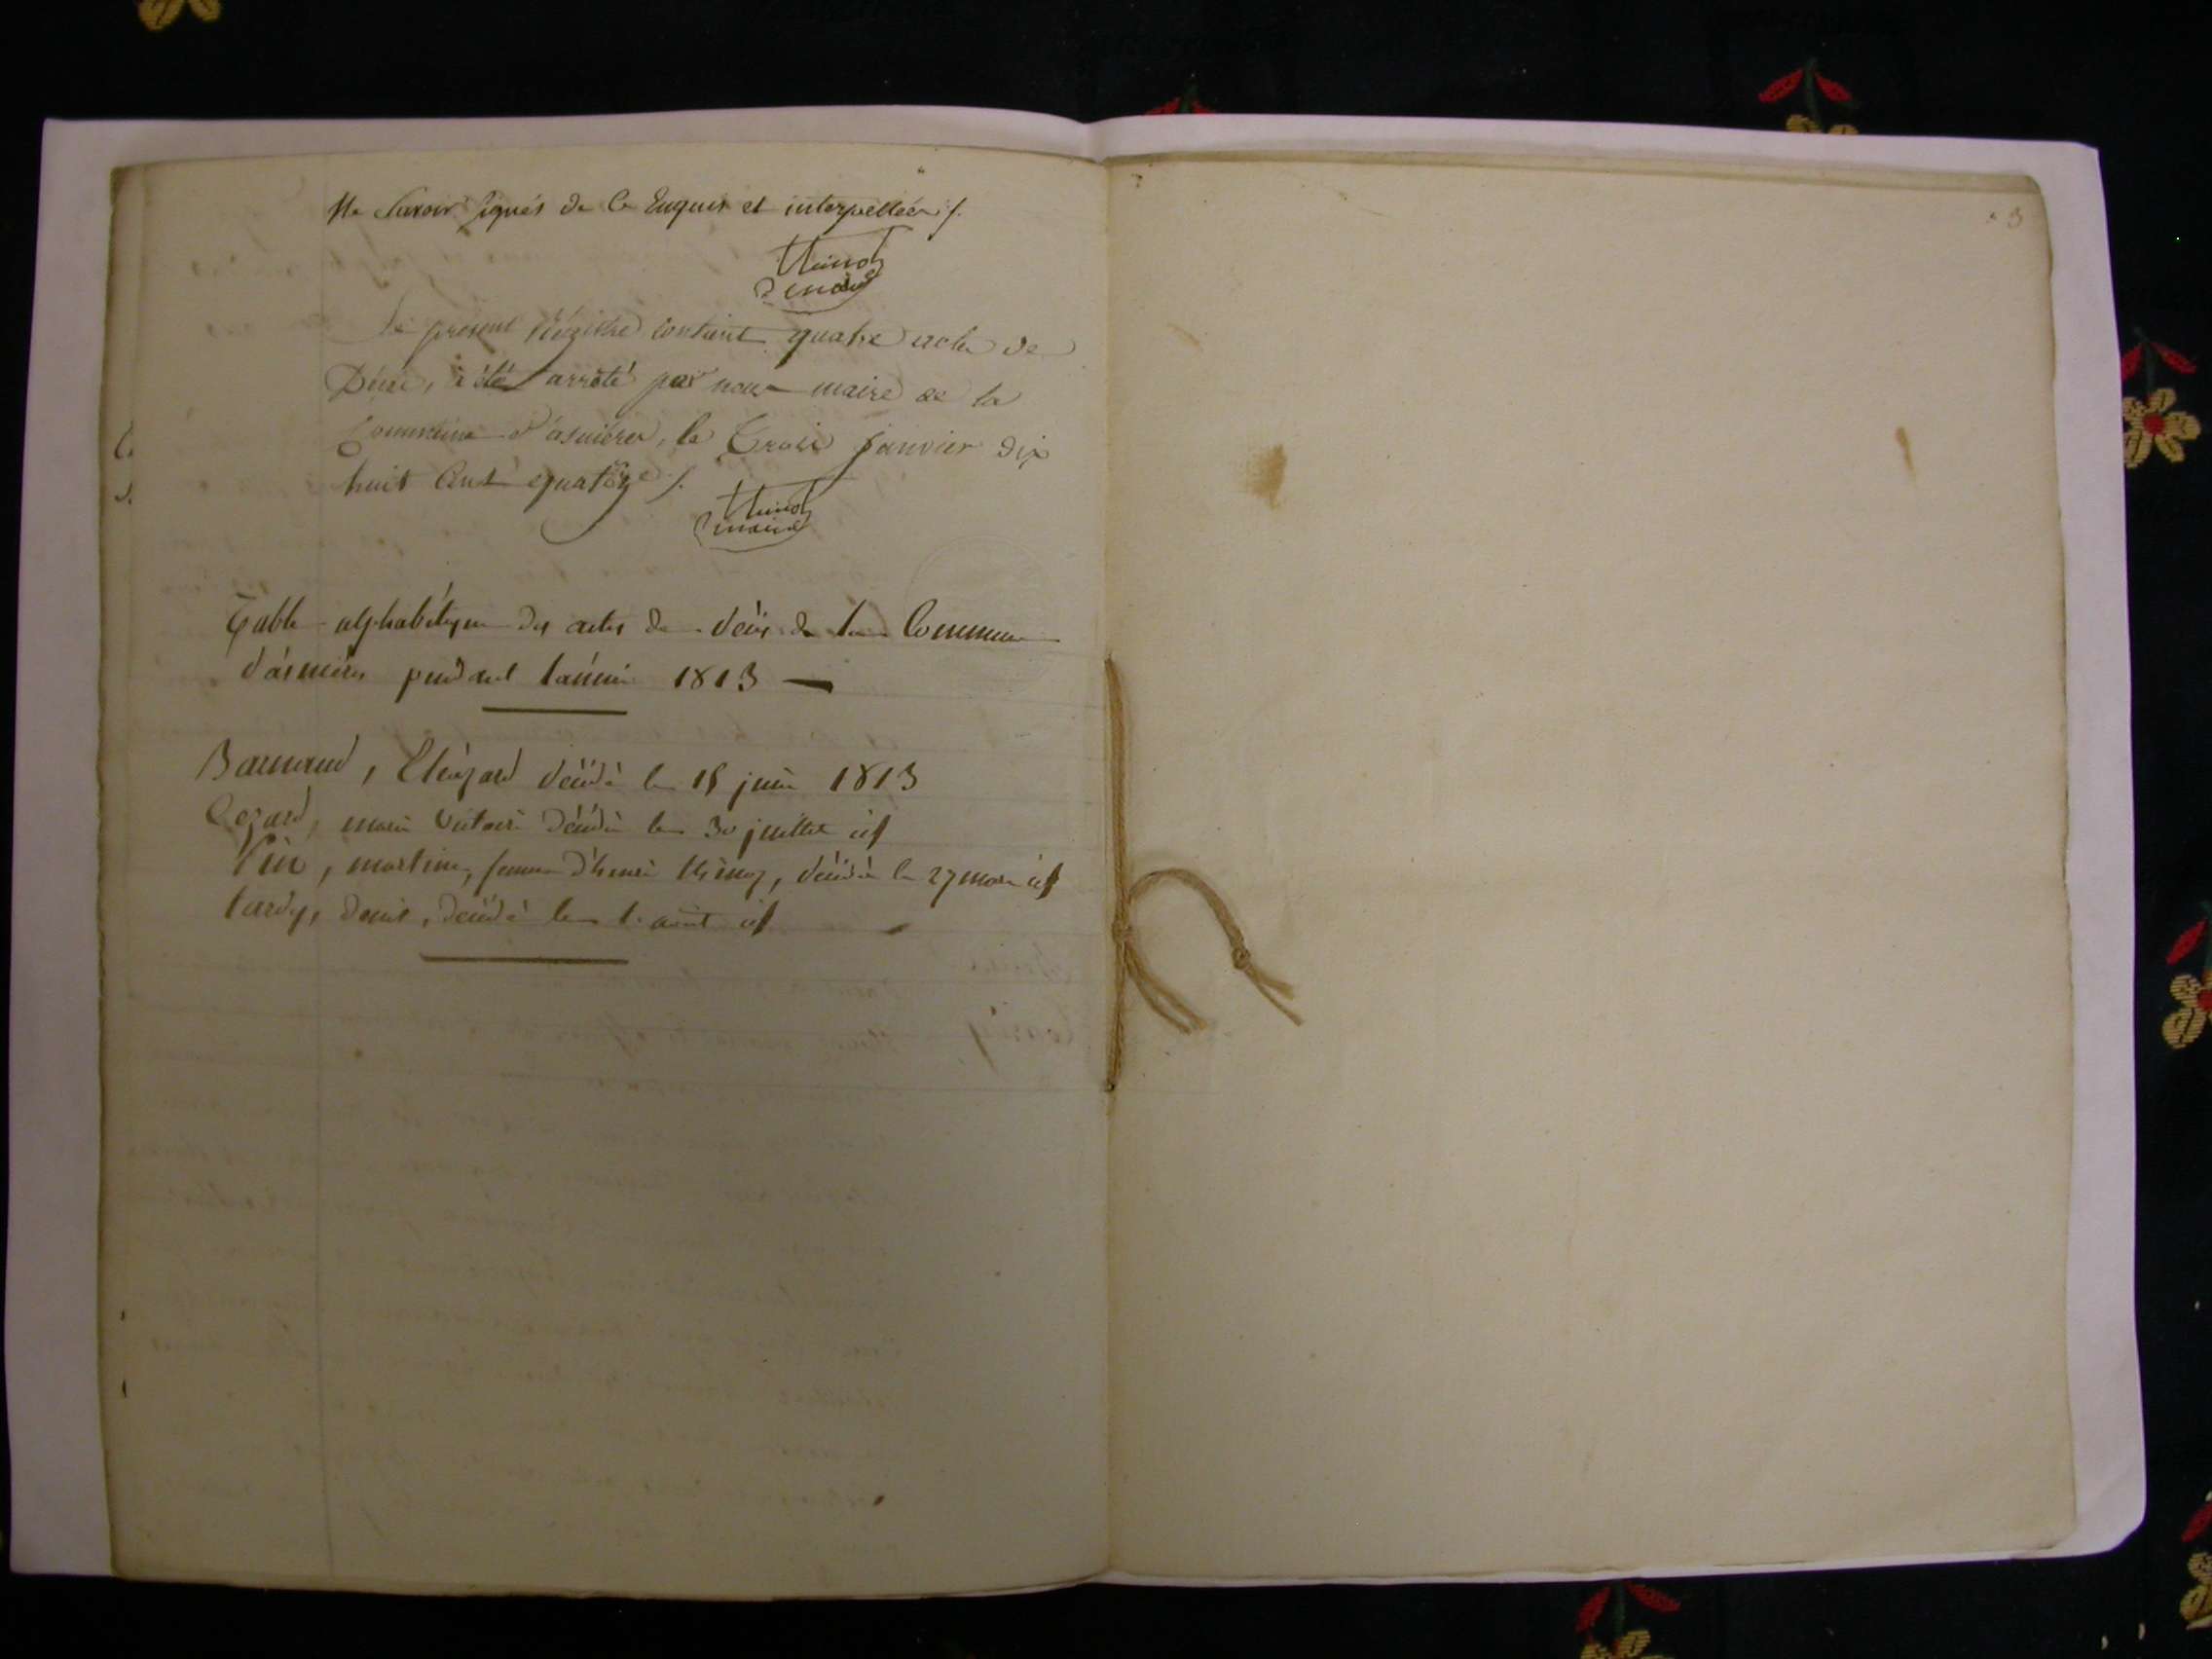 Ne Savoir signés de ce Enquis et interpellées /.
Thinoz
maire
Le présent Régithre contient quatre actes de
Décès, a été arrêté par nous maire de la
Commune d'asnières, le Trois janvier dix
huit Cent quatorze /.
Thinoz
maire
Table alphabétique des actes de décès de la Commune
d'asnières pendant l'année 1813 —
Barnaud, Eléazard décédé le 15 juin 1813
marie Victoire décédée le 30 juillet id
martine, femme d'henri thinoz, décédée le 27 mars id
tardy, Denis, décédé le 1. août id
3